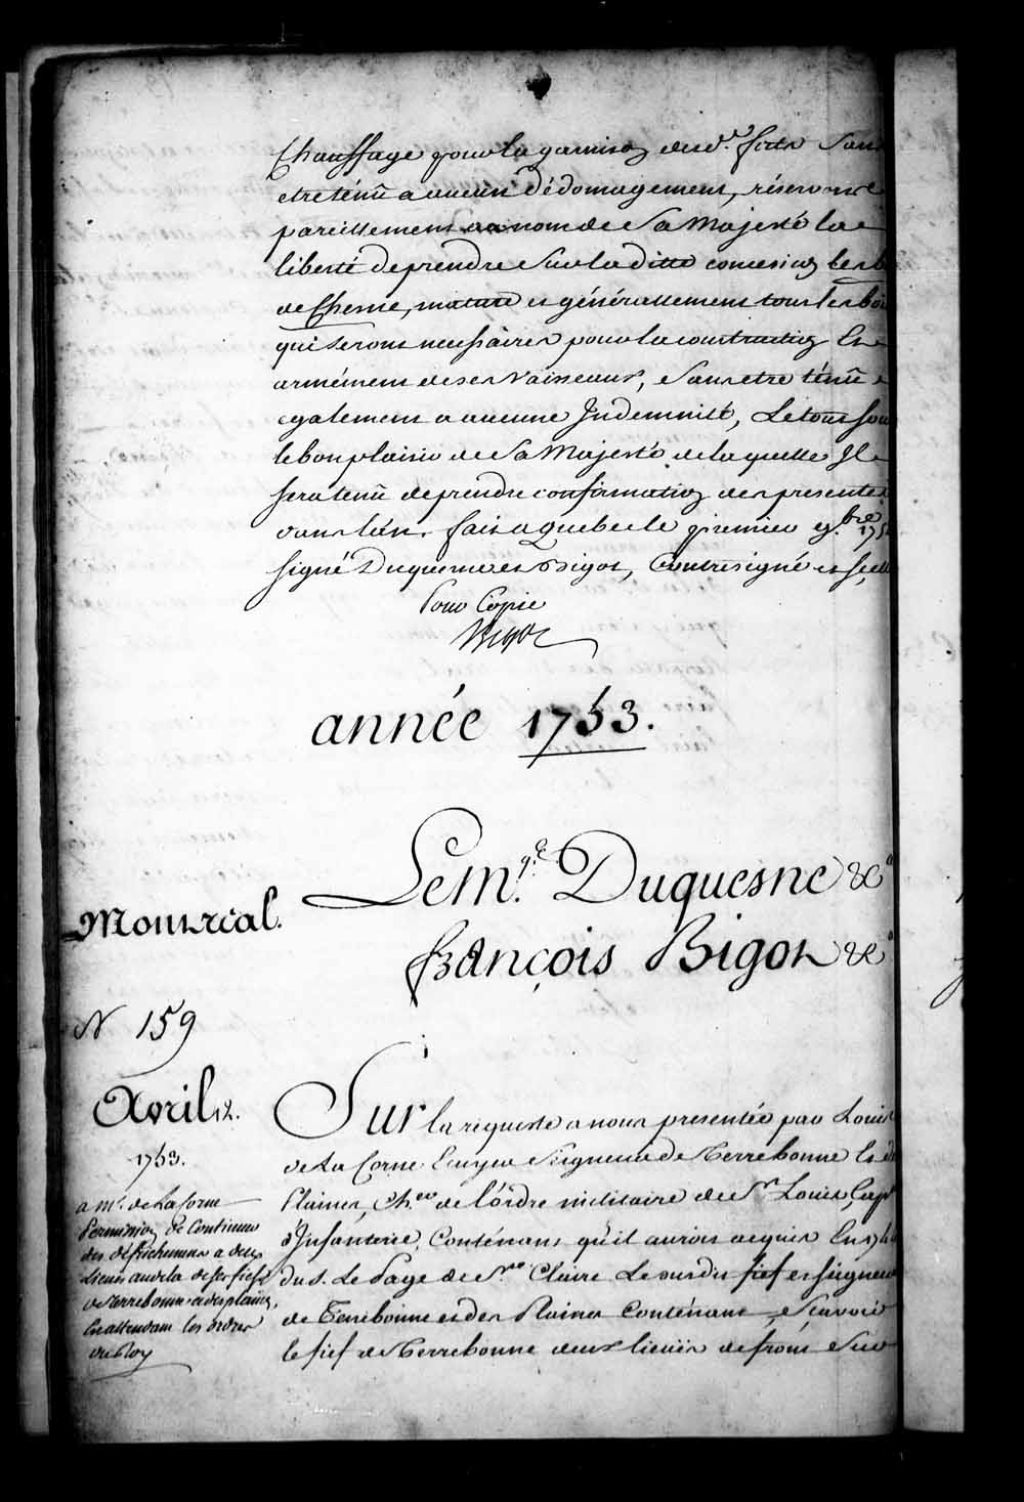 Chauffage pour la garnison desd. forts Sans
etre tenü a aucun dédomagement, réservons
pareillement au nom de Sa Majesté la
liberté de prendre Sur la ditte concession les b
de Chesne, mature et généralement tous les boi
qui Seront necessaires pour la construction Et
armément de ses Vaisseaux, Sans etre ténü
egalement a aucune Indemnité, Le tout sou
le bon plaisir de Sa Majesté de laquelle Il
sera tenü de prendre confirmation des presentes
dans l'an. fait a Quebec le premier 9.bre 175
signé Duquesne et Bigot, Contresigné et scellé
Pour Copie
Bigot
année 1753.
Le M.qis Duquesne &c.a
Montreal.
françois Bigot &c.a
N 159
Avril 12.
1753.
a M.r de La Corne
Permission de Continuer
des défrichemens a deux
Lieües audela de ses fiefs
de Terrebonne et des plaines,
En attendant les ordres
du Roy
Sur la requeste a nous presentée par Louis
de La Corne Ecuyer Seigneur de Terrebonne et d
Plaines, Ch.er de l'ordre militaire de S.t Louis, Cap.
d'Infanterie, Contenant qu'il auroit acquis En 174
du S. Le Page de S.te Claire Le susdit fief et seigneu
de Terrebonne et des Plaines Contenant, Sçavoir
le fief de Terrebonne deux lieües de front Sur